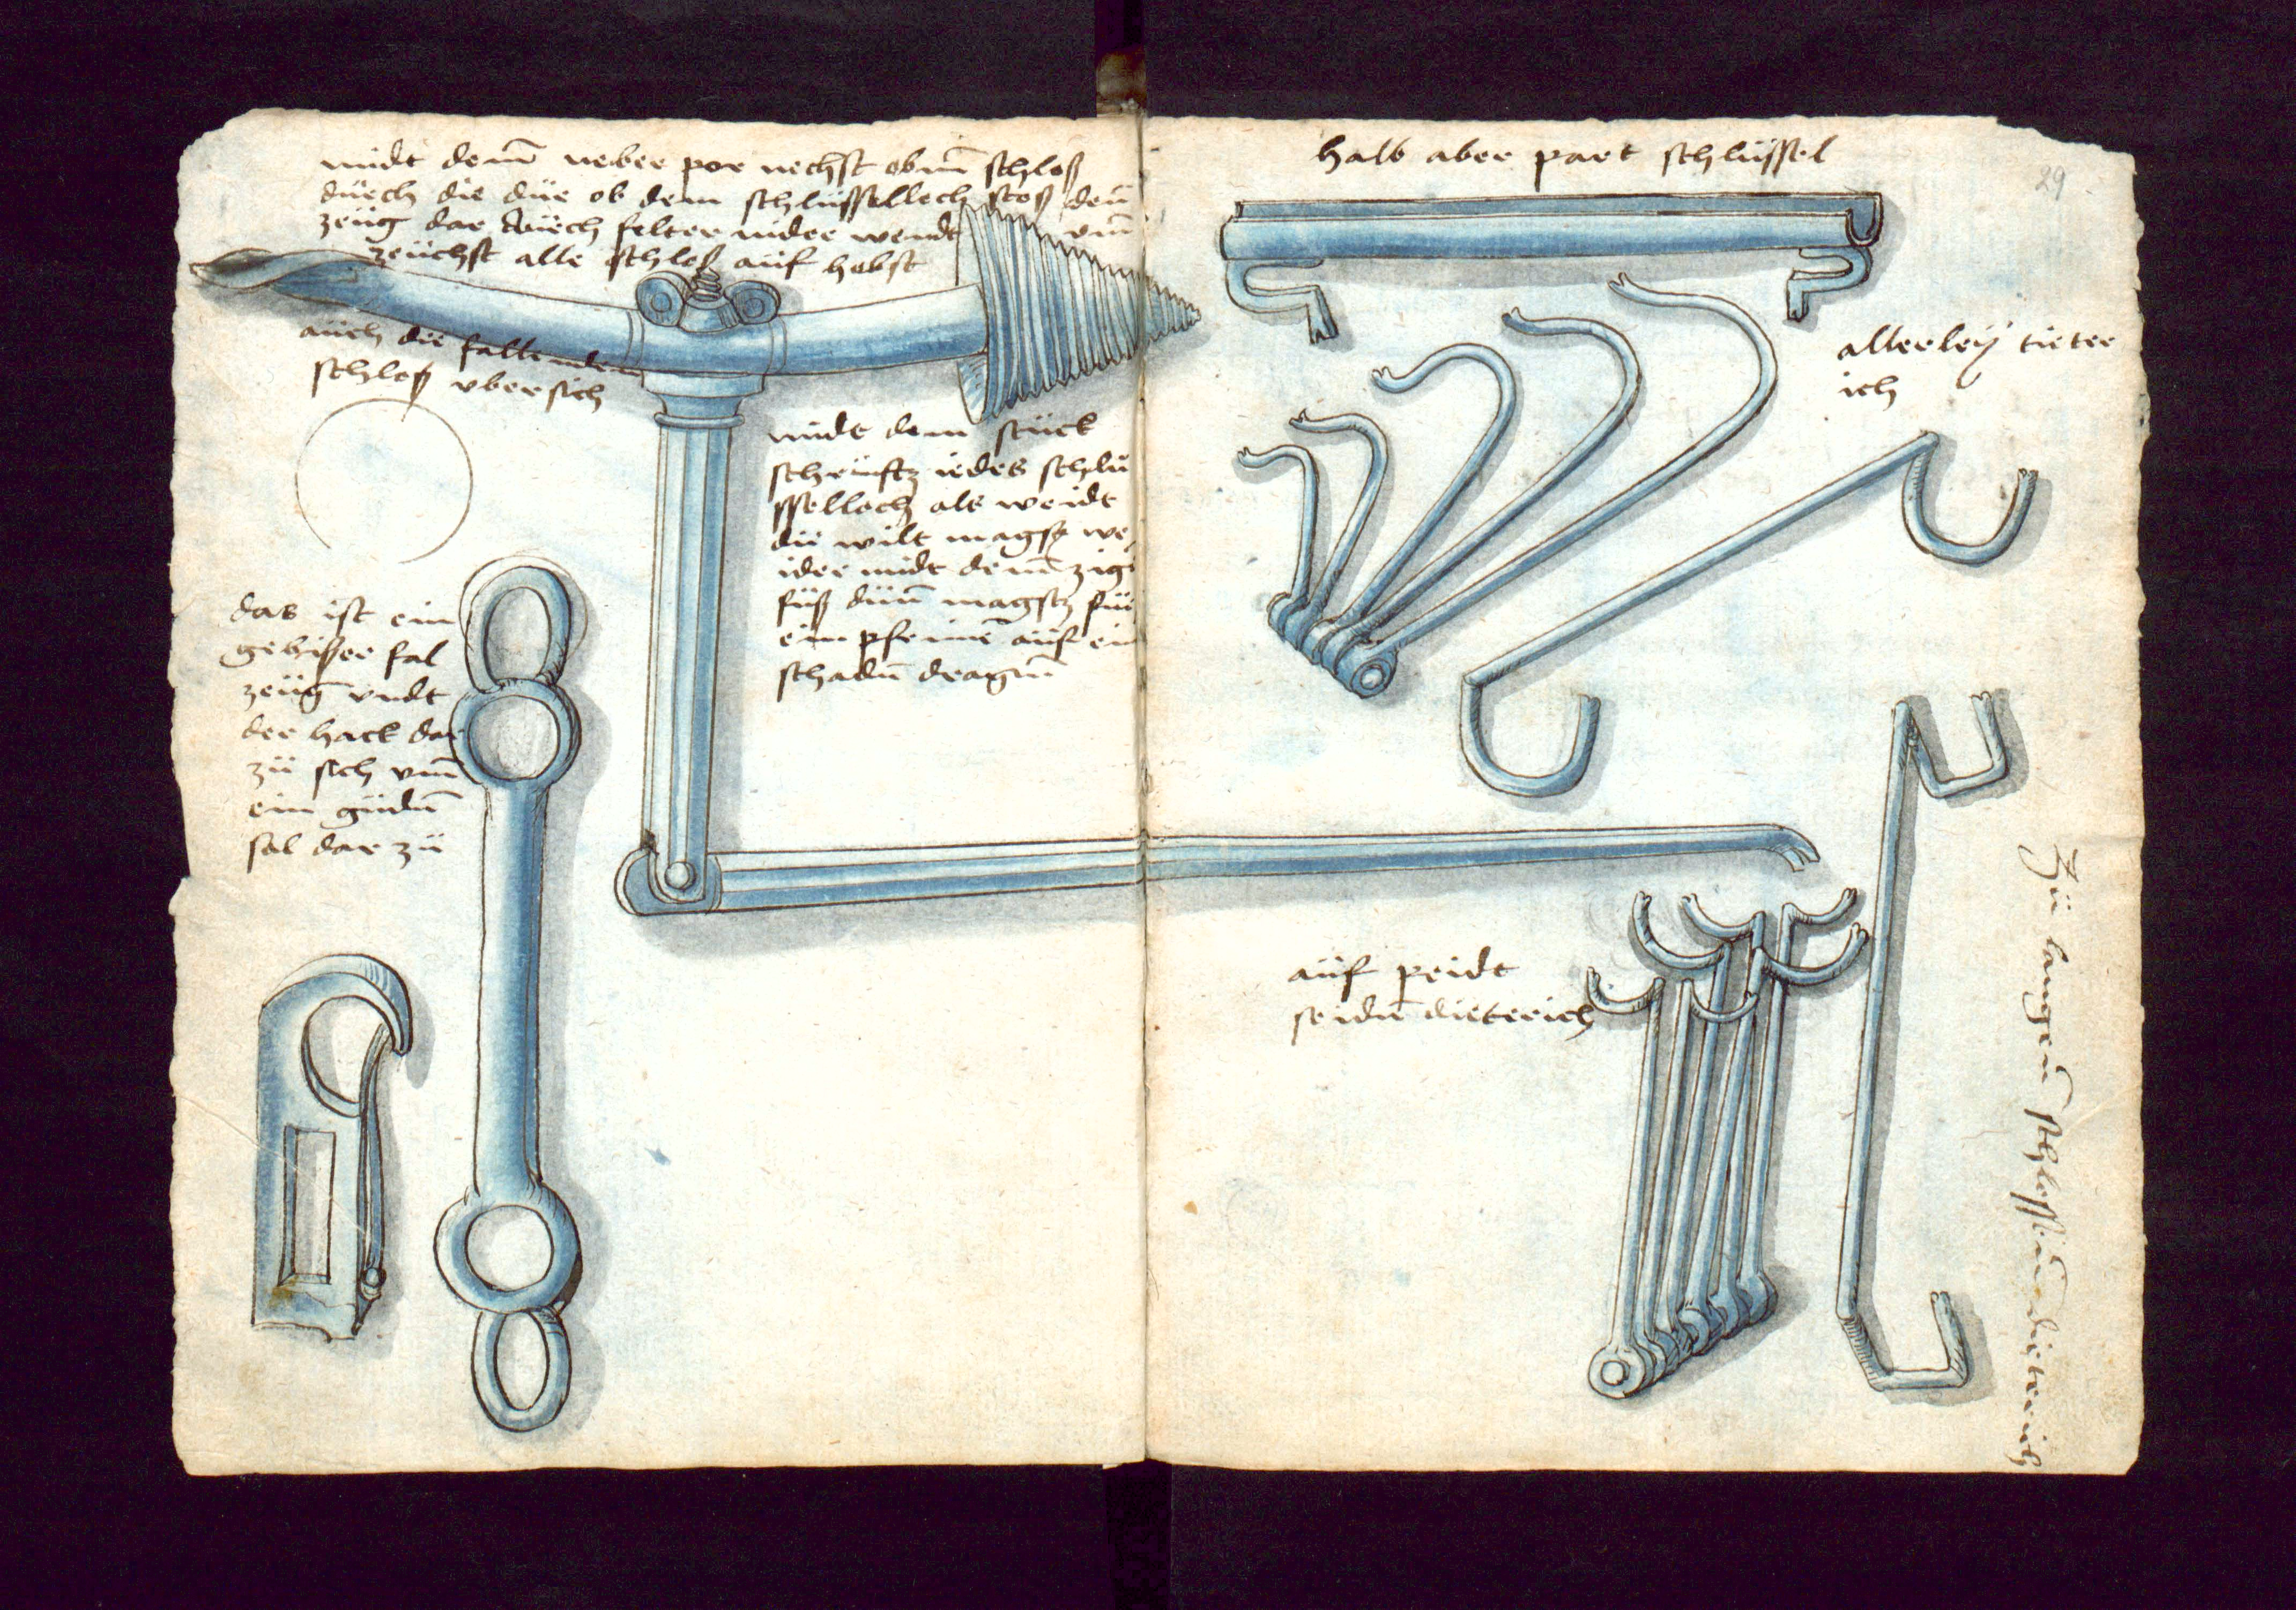 midt dem̄ neber por nechst obm̄ schloß
durch die düe ob dem schlüssellech stoß den
zeüg dar durch felter nider wendt vm̄
zeüchst alle schloß auf hebst
auch die fallenden
schloß vber sich
midt dem stück
schrüftz iedes schlü
sselloch als weidt
dü wilt magst we
ider midt dem̄ zigē
füß düm̄ magstz für
ein pfrimē auf ein
schadn̄ dragm̄
das ist ein
gehißer fal
zeüg vndt
der hack dar
zü sich vm̄
ein güdn̄
fal dar zü
halb aber part schlüssel
29
allerleÿ tieter
ich
auf peidt
seidn̄ dieterich
Zü langen schlossen dieterich